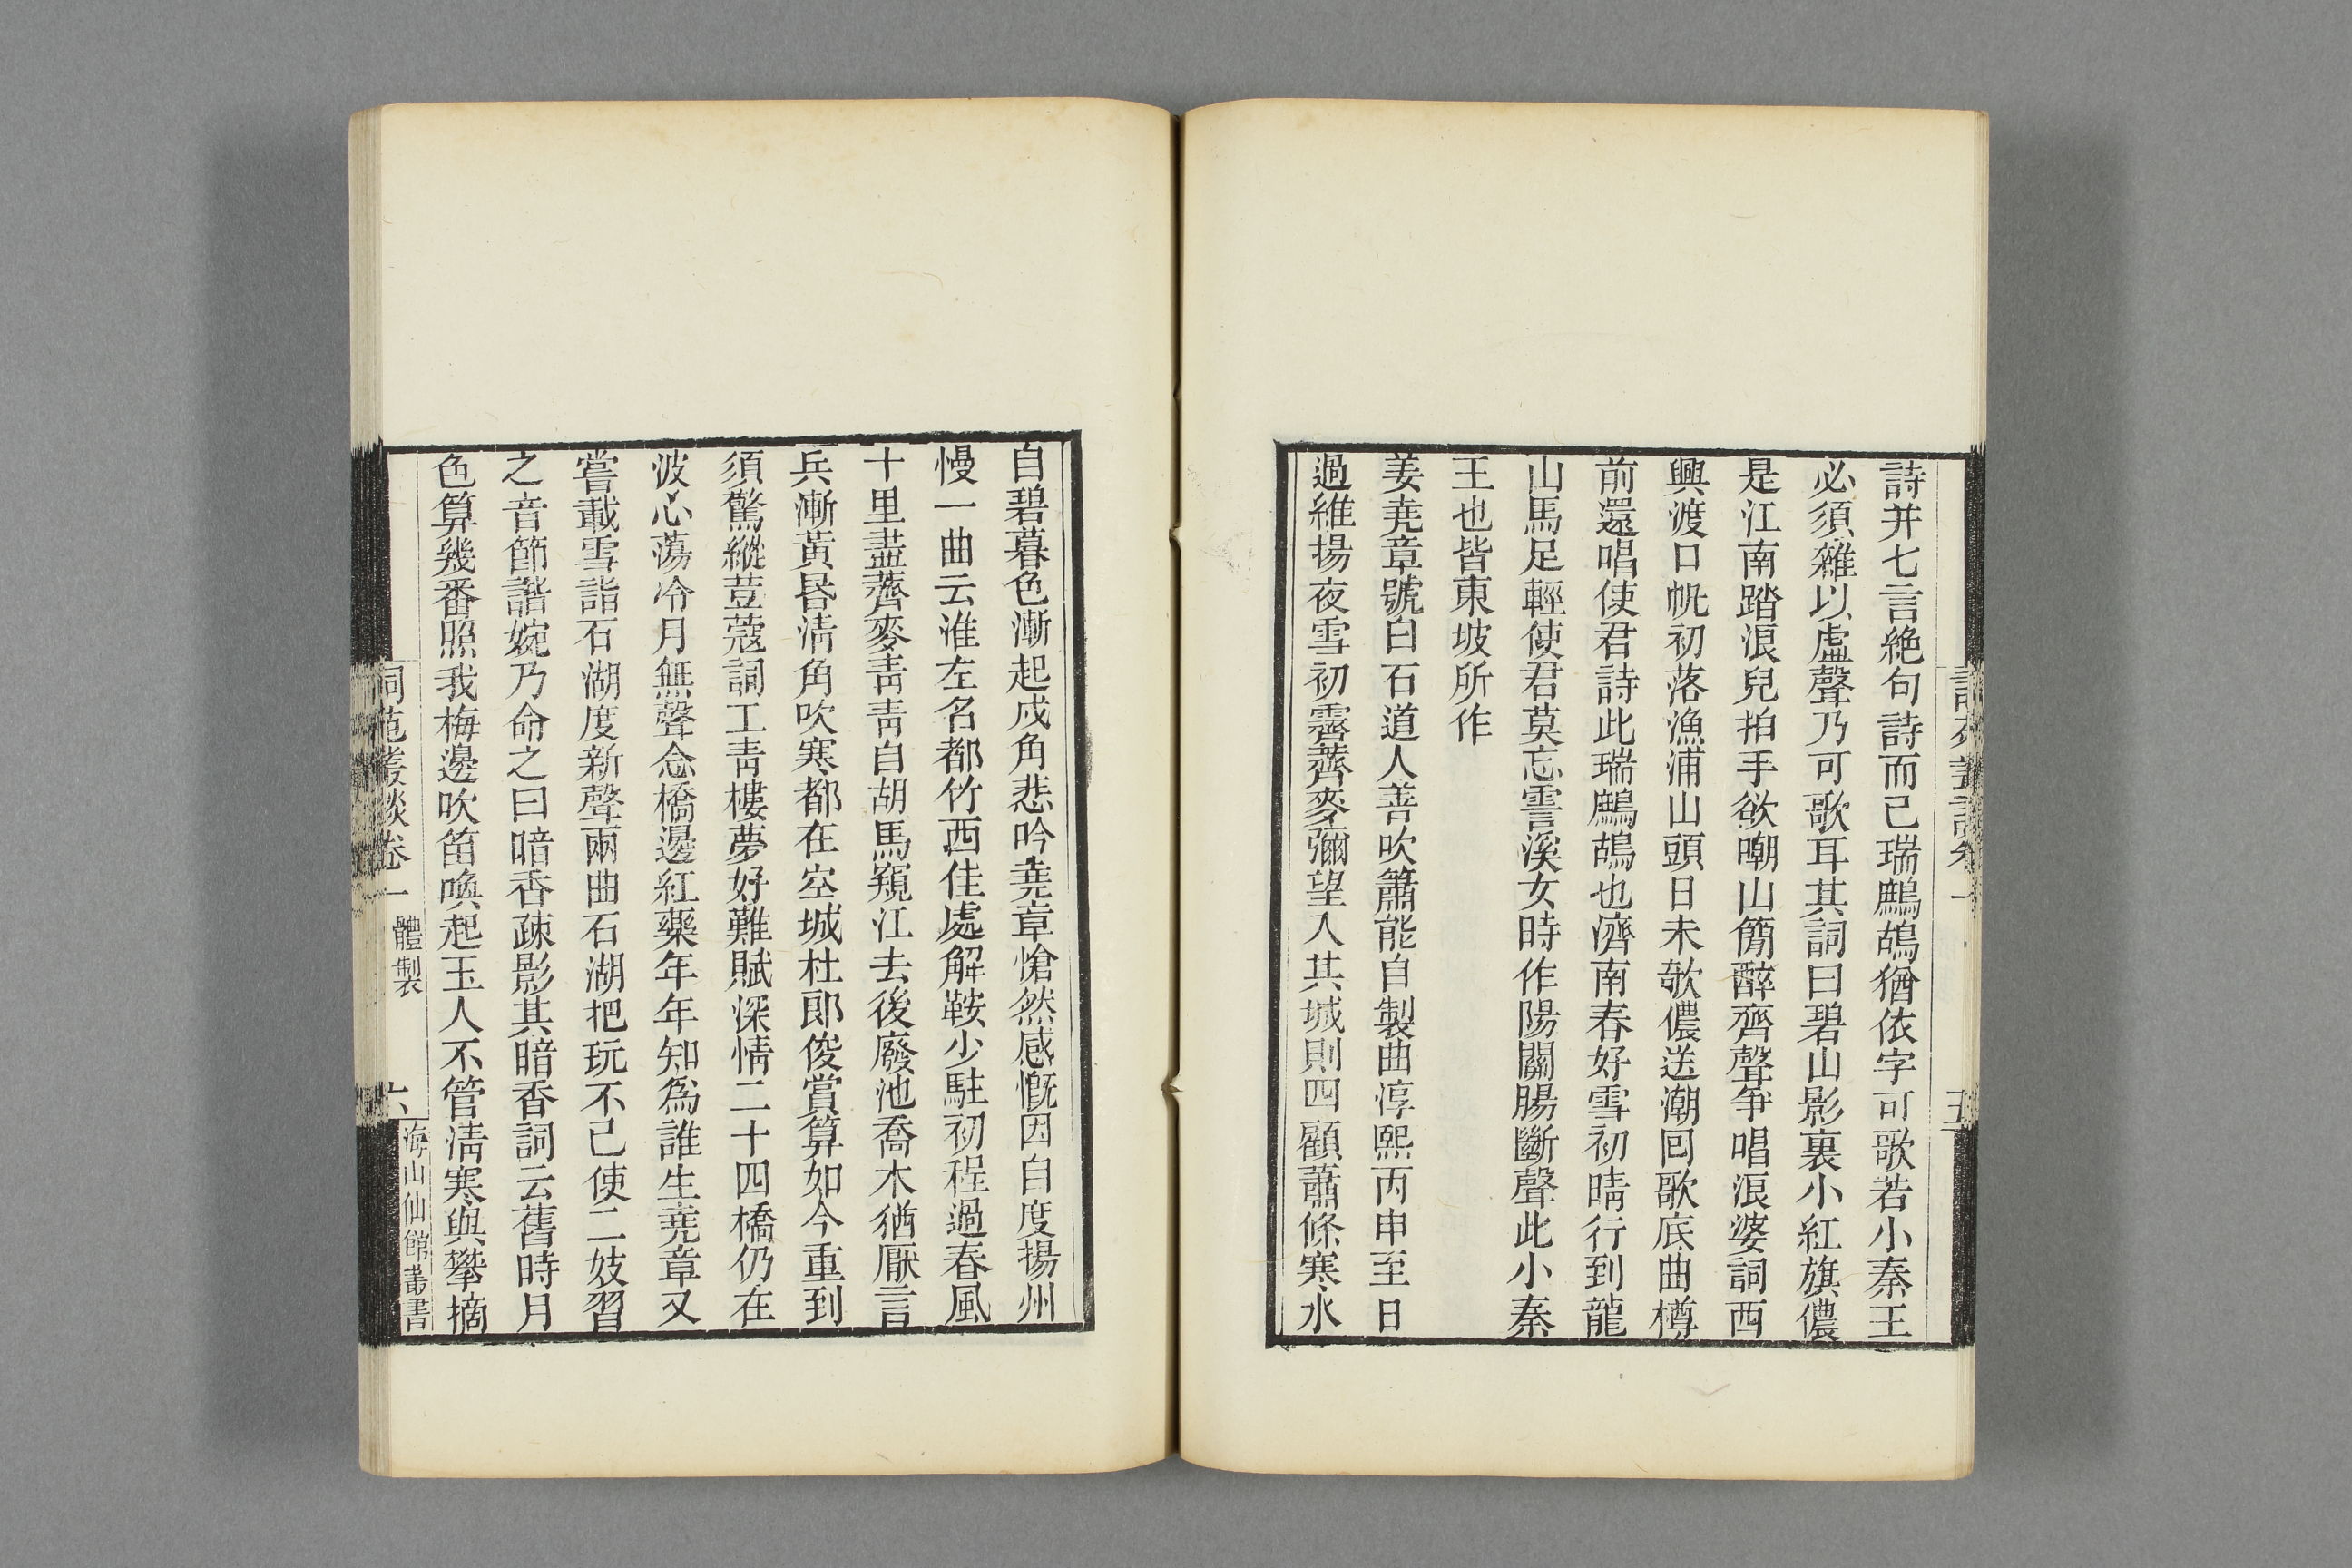 詩并七言絶句詩而已瑞鷓鴣猶依字可歌若小秦王
必須雜以虛聲乃可歌耳其詞曰碧山影裏小紅旗儂
是江南踏浪兒拍手欲嘲山簡醉齊聲爭唱浪婆詞西
興渡口帆初落漁浦山頭日未欹儂送潮囘歌底曲樽
前還唱使君詩此瑞鷓鴣也濟南春好雪初晴行到龍
山馬足輕使君莫忘霅溪女時作陽關腸斷聲此小秦
王也皆東坡所作
姜堯章號白石道人善吹簫能自製曲淳熙丙申至日
過維揚夜雪初霽薺麥彌望入其城則四顧蕭條寒水
五
自碧暮色漸起戍角悲吟堯章愴然感慨因自度揚州
慢一曲云淮左名都竹西佳處解鞍少駐初程過春風
十里盡薺麥靑靑自胡馬窺江去後廢池喬木猶厭言
兵漸黃昬淸角吹寒都在空城杜郎俊賞算如今重到
須驚縱荳蔻詞工靑樓夢好難賦深情二十四橋仍在
波心蕩冷月無聲念橋邊紅藥年年知爲誰生堯章又
嘗載雪詣石湖度新聲兩曲石湖把玩不已使二妓習
之音節諧婉乃命之曰暗香疎影其暗香詞云舊時月
色算幾番照我梅邊吹笛喚起玉人不管淸寒與攀摘
詞苑叢談卷一 體製 六 海山仙館叢書